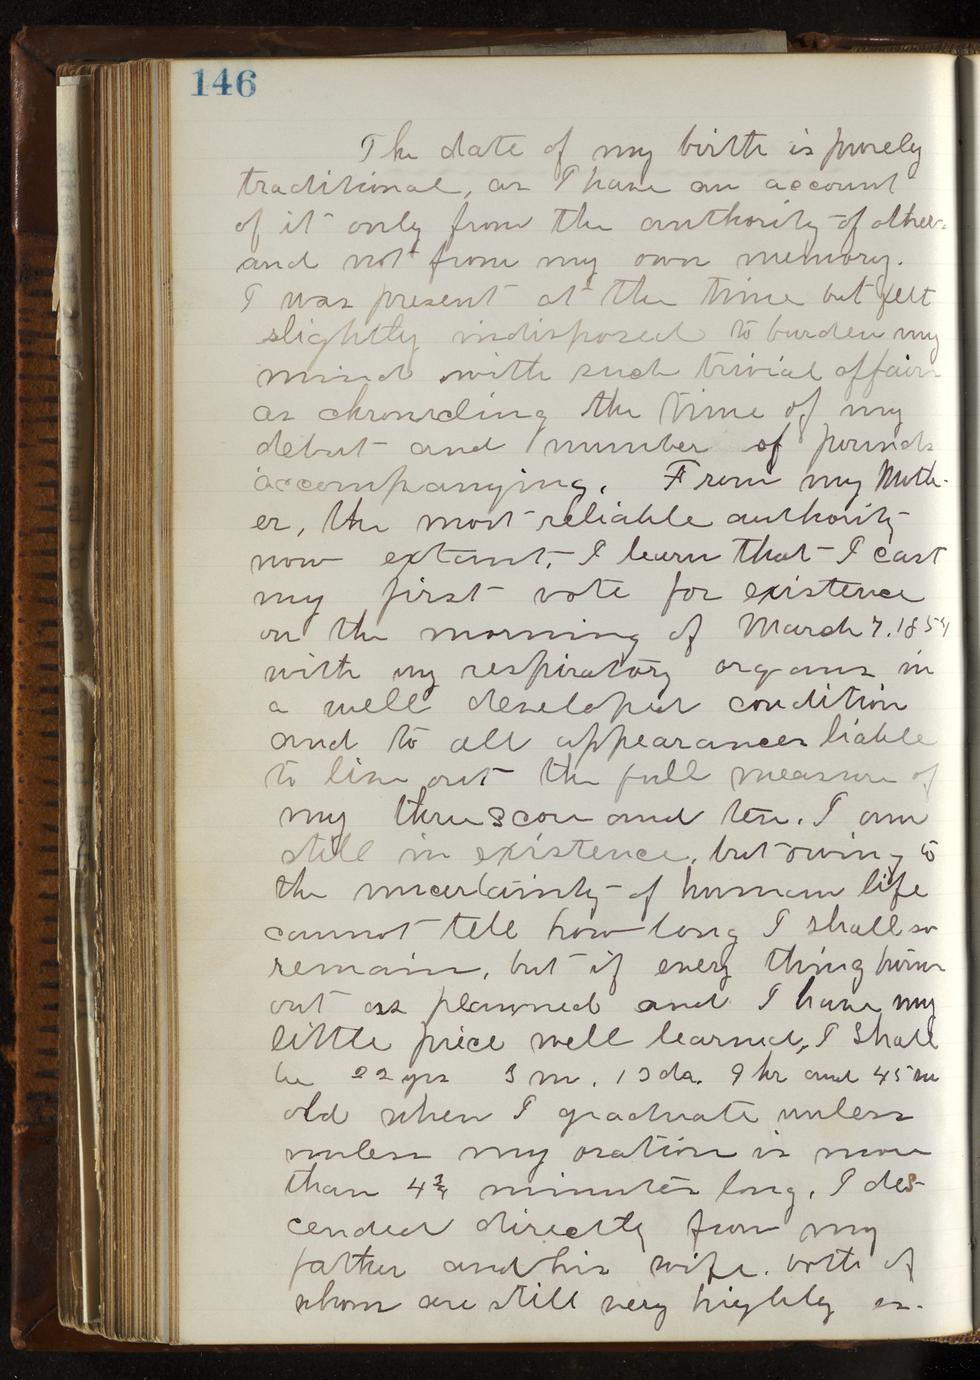 146
The date of my birth is purely
traditional, as I have an account
of it only from the authority of others
and not from my own memory.
I was present at the time but felt
slightly indisposed to burden my
mind with such trivial affairs
as chronicling the time of my
debut and number of pounds
accompanying. From my Moth-
er, the most reliable authority
now extant, I learn that I cast
my first vote for existence
on the morning of March 7. 1854
with my respiratory organs in
a well developed condition
and to all appearances liable
to live out the full measure of
my three score and ten. I am
still in existence, but owing to
the uncertainty of human life
cannot tell how long I shall so
remain, but if every thing turns
out as planned and I have my
little piece well learned, I shall
be 22 yrs 3 m. 13 da. 9 hr and 45 m
old when I graduate unless
unless my oration is more
than 4 3/4 minutes long. I des-
cended directly from my
father and his wife. both of
whom are still very highly es-